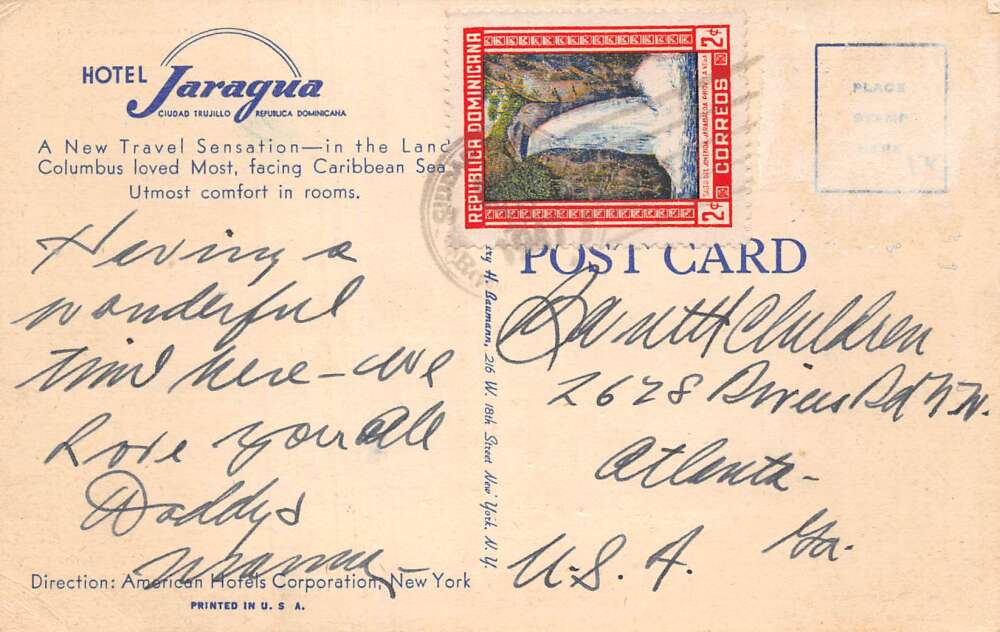 HOTEL Jaragua
CIUDAD TRUJILLO REPUBLICA DOMINICANA
A New Travel Sensation—in the Land
Columbus loved Most, facing Caribbean Sea
Utmost comfort in rooms.
Having a
wonderful
time here - we
love you all
Daddy &
Direction: American Hotels Corporation, New York
PRINTED IN U. S A.
REPUBLICA DOMINICANA
2¢ CORREOS 2¢
SALTO DEL JIMENOA, JARABACOA, PROV. LA VEGA
PLACE
STAMP
HERE
POST CARD
ry H. Baumann, 216 W. 18th Street New York, N. Y.
Children
2628 Rivers Rd N.W.
Atlanta -
Ga.
U.S.A.